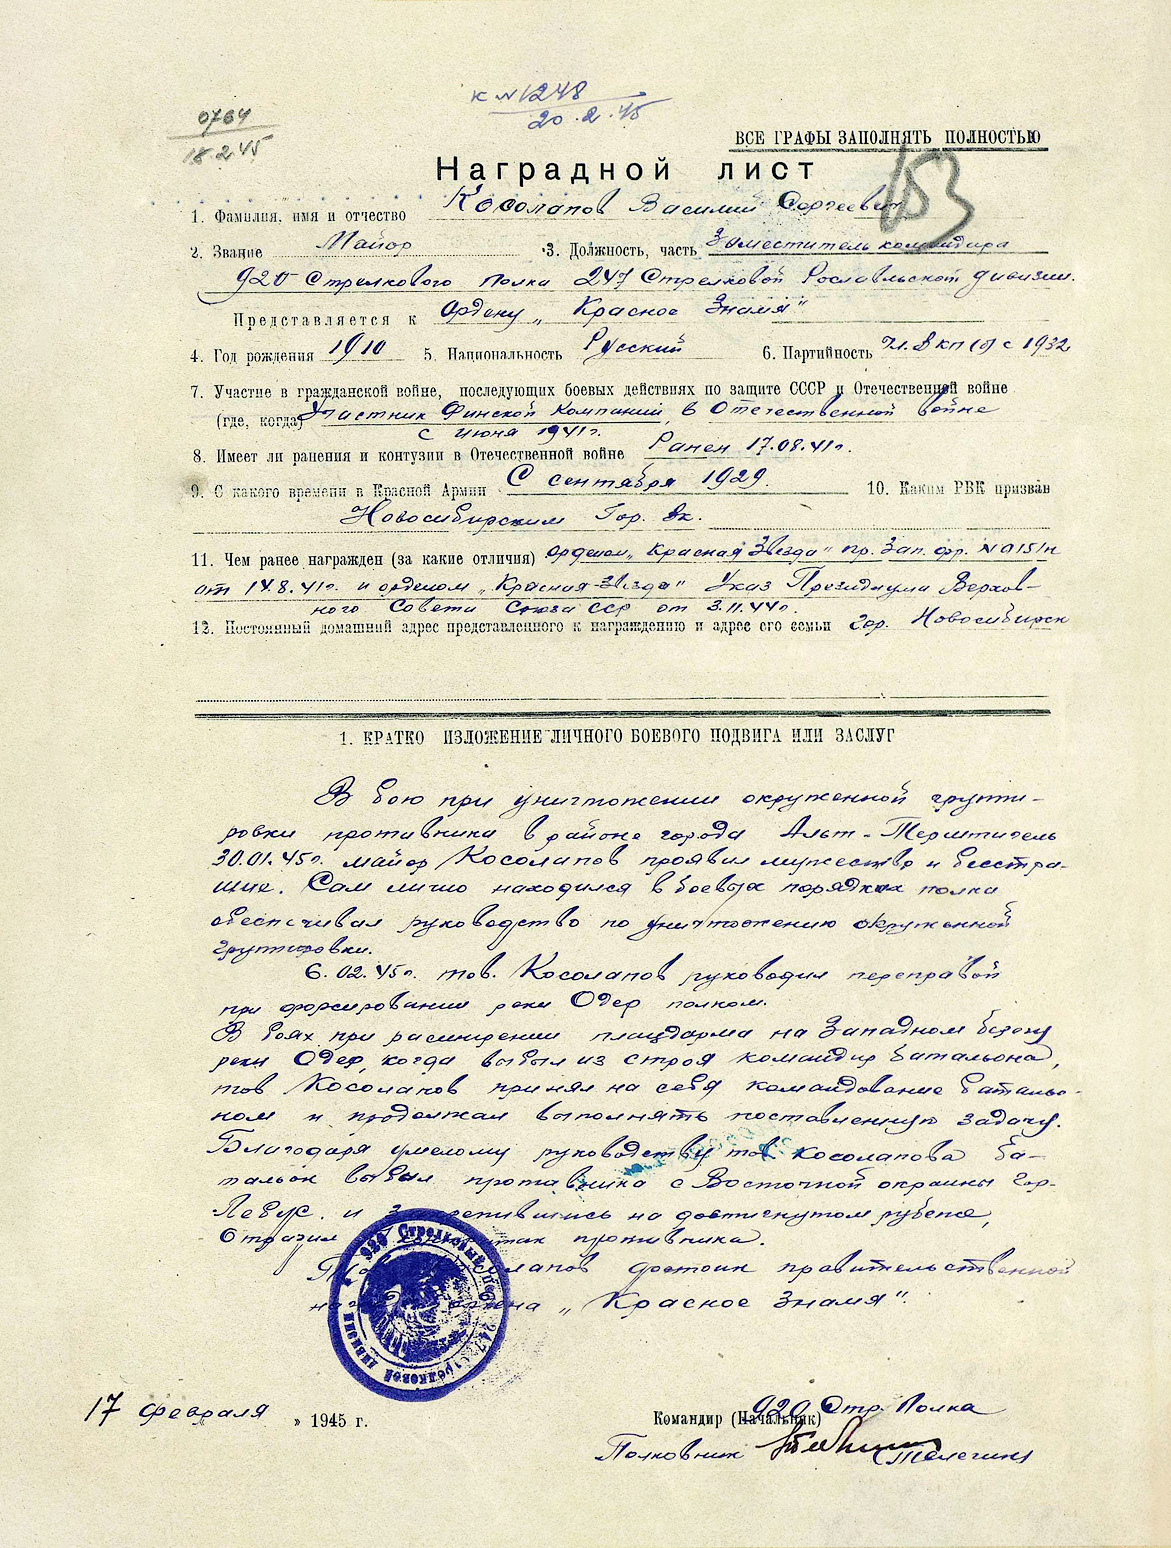 к №1248
20.2.45
0764
18.2.45
ВСЕ ГРАФЫ ЗАПОЛНЯТЬ ПОЛНОСТЬЮ
153
Наградной лист
1. Фамилия, имя и отчество Косолапов Василий Сергеевич
2. Звание Майор 3. Должность, часть Заместитель командира
920 Стрелкового полка 247 Стрелковой Рославльской дивизии.
Представляется к Ордену „Красное Знамя"
4. Год рождения 1910 5. Национальность Русский 6. Партийность чл. ВКП(б) с 1932
7. Участие в гражданской войне, последующих боевых действиях по защите СССР и Отечественной войне
(где, когда) Участник Финской Компании, в Отечественной войне
с июня 1941г.
8. Имеет ли ранения и контузии в Отечественной войне Ранен 17.08.41г.
9. С какого времени в Красной Армии С сентября 1929. 10. Каким РВК призван
Новосибирским Гор. вк.
11. Чем ранее награжден (за какие отличия) орденом „Красная Звезда" пр. Зап. фр. N 0151/н
от 14.8.41г. и орденом „Красная Звезда" Указ Президиума Верхов-
ного Совета Союза ССР от 3.11.44г.
12. Постоянный домашний адрес представленного к награждению и адрес его семьи Гор. Новосибирск
1. КРАТКО ИЗЛОЖЕНИЕ ЛИЧНОГО БОЕВОГО ПОДВИГА ИЛИ ЗАСЛУГ
В бою при уничтожении окруженной группи-
ровки противника в районе города Альт-Терштигель
30.01.45г. майор Косолапов проявил мужество и бесстра-
шие. Сам лично находился в боевых порядках полка
обеспечивал руководство по уничтожению окруженной
группировки.
6.02.45г. тов. Косолапов руководил переправой
при форсировании реки Одер полком.
В боях при расширении плацдарма на Западном берегу
реки Одер, когда выбыл из строя командир батальона,
тов Косолапов принял на себя командование батальо-
ном и продолжал выполнять поставленную задачу.
Благодаря умелому руководству тов Косолапова ба-
тальон выбил противника с Восточной окраины гор-
Лебус. и на достигнутом рубеже,
Отразил противника.
достоин правительственной
„Красное Знамя".
920 Стрелковый полк 247 стрелковой дивизии
17 февраля » 1945 г.
Командир (Начальник) 920 Стр. Полка
Полковник (Телегин)